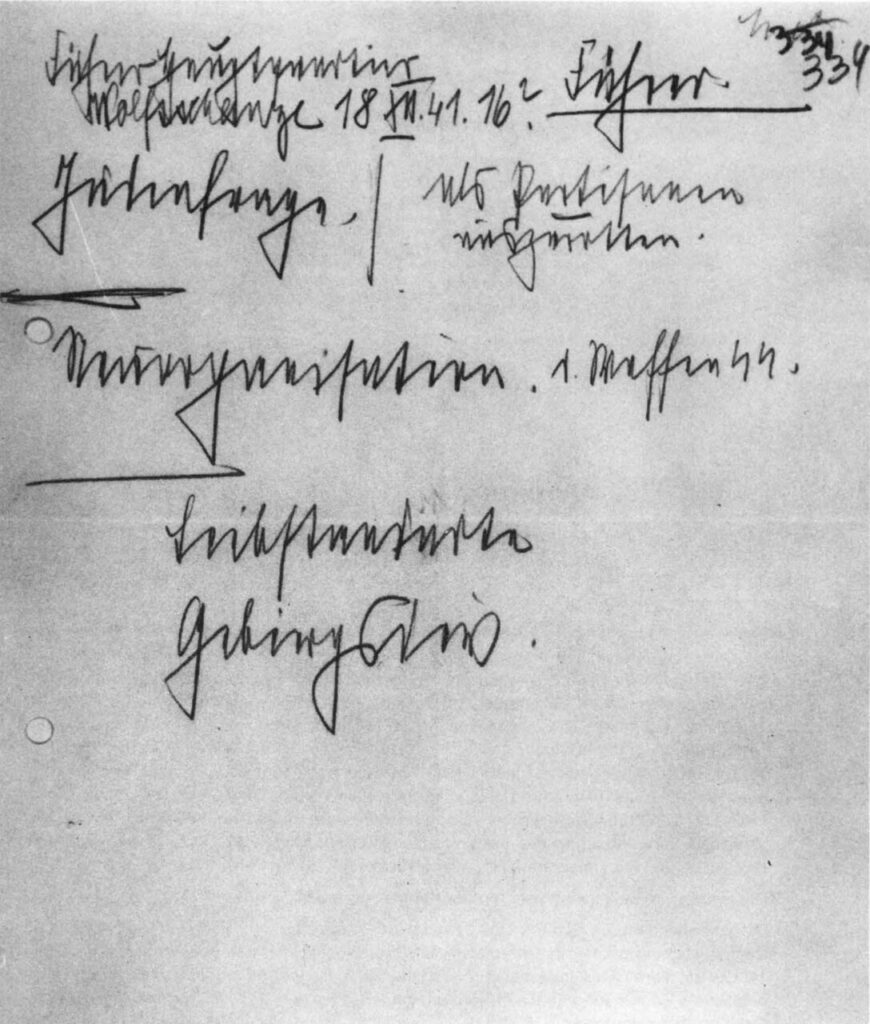 334
334
Führerhauptquartier
Wolfsschanze 18 XII.41. 16h. Führer
Judenfrage. | als Partisanen
auszurotten.
Neuorganisation. d. Waffen SS.
Leibstandarte
Gebirgsdiv.